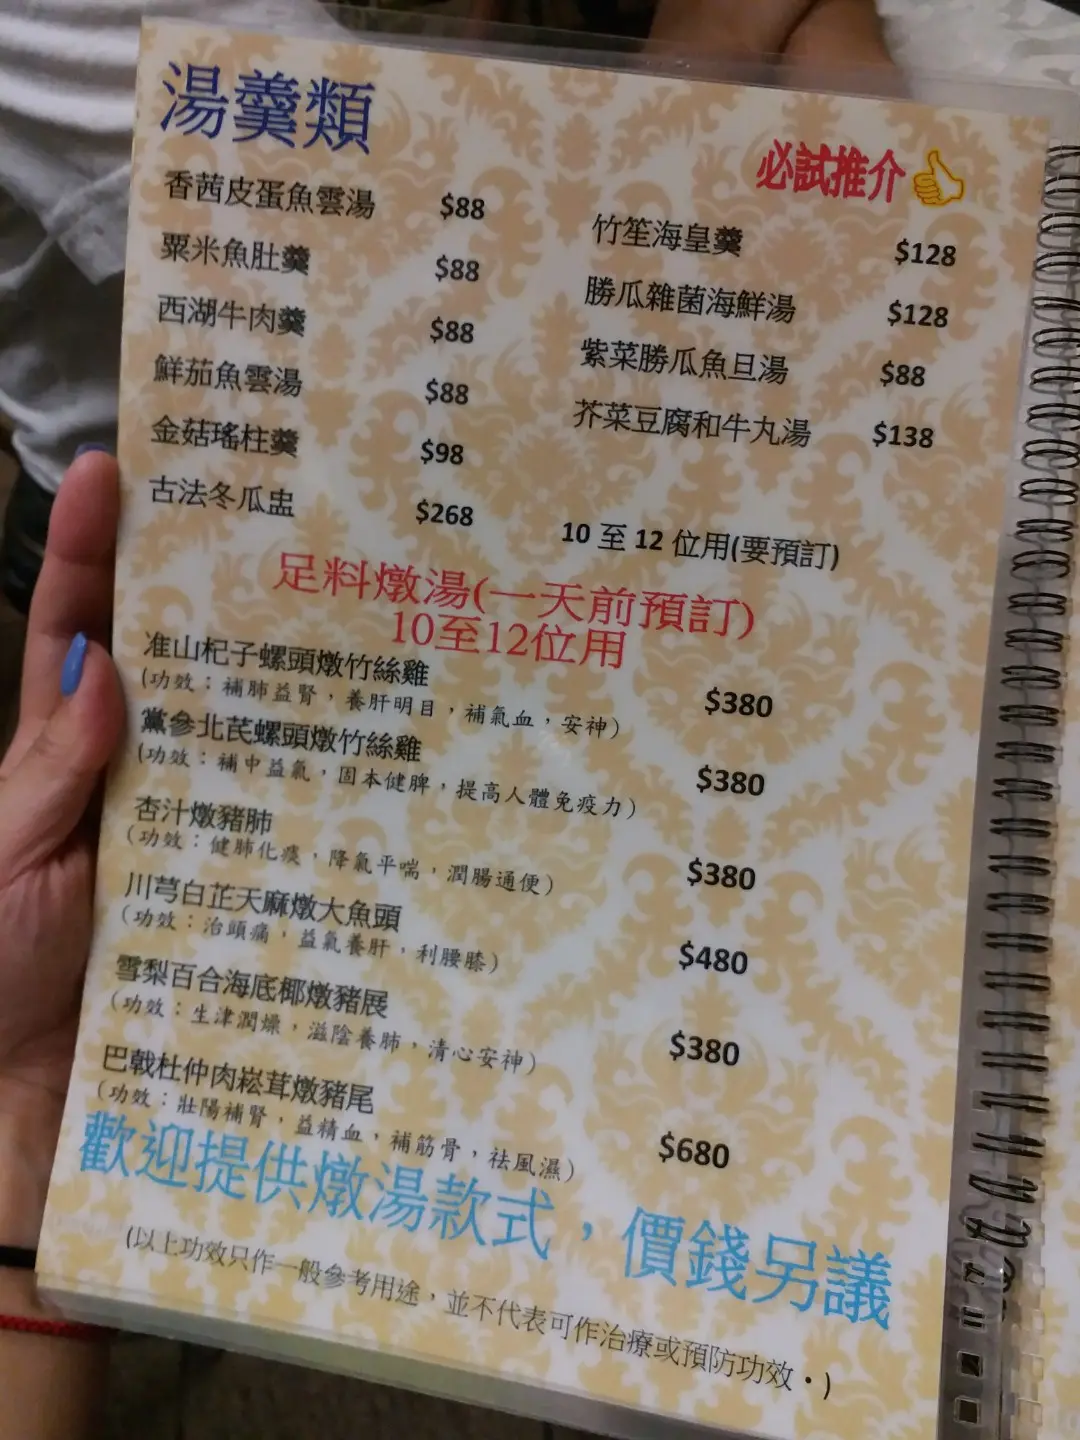 湯羹類
必試推介
香茜皮蛋魚雲湯 $88
粟米魚肚羹 $88
西湖牛肉羹 $88
鮮茄魚雲湯 $88
金菇瑤柱羹 $98
古法冬瓜盅 $268
竹笙海皇羹 $128
勝瓜雜菌海鮮湯 $128
紫菜勝瓜魚旦湯 $88
芥菜豆腐和牛丸湯 $138
10 至 12 位用(要預訂)
足料燉湯(一天前預訂)
10至12位用
准山杞子螺頭燉竹絲雞 $380
(功效：補肺益腎，養肝明目，補氣血，安神)
黨參北芪螺頭燉竹絲雞 $380
(功效：補中益氣，固本健脾，提高人體免疫力)
杏汁燉豬肺 $380
(功效：健肺化痰，降氣平喘，潤腸通便)
川芎白芷天麻燉大魚頭 $480
(功效：治頭痛，益氣養肝，利腰膝)
雪梨百合海底椰燉豬展 $380
(功效：生津潤燥，滋陰養肺，清心安神)
巴戟杜仲肉崧茸燉豬尾 $680
(功效：壯陽補腎，益精血，補筋骨，祛風濕)
歡迎提供燉湯款式，價錢另議
(以上功效只作一般參考用途，並不代表可作治療或預防功效。)